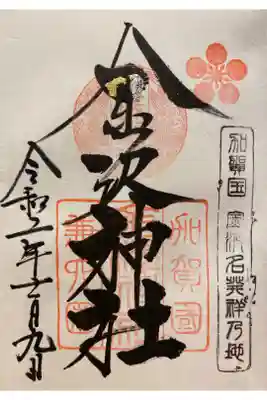 加賀国 金沢名発祥乃地
金沢神社
加賀国
兼六園
令和二年十一月九日